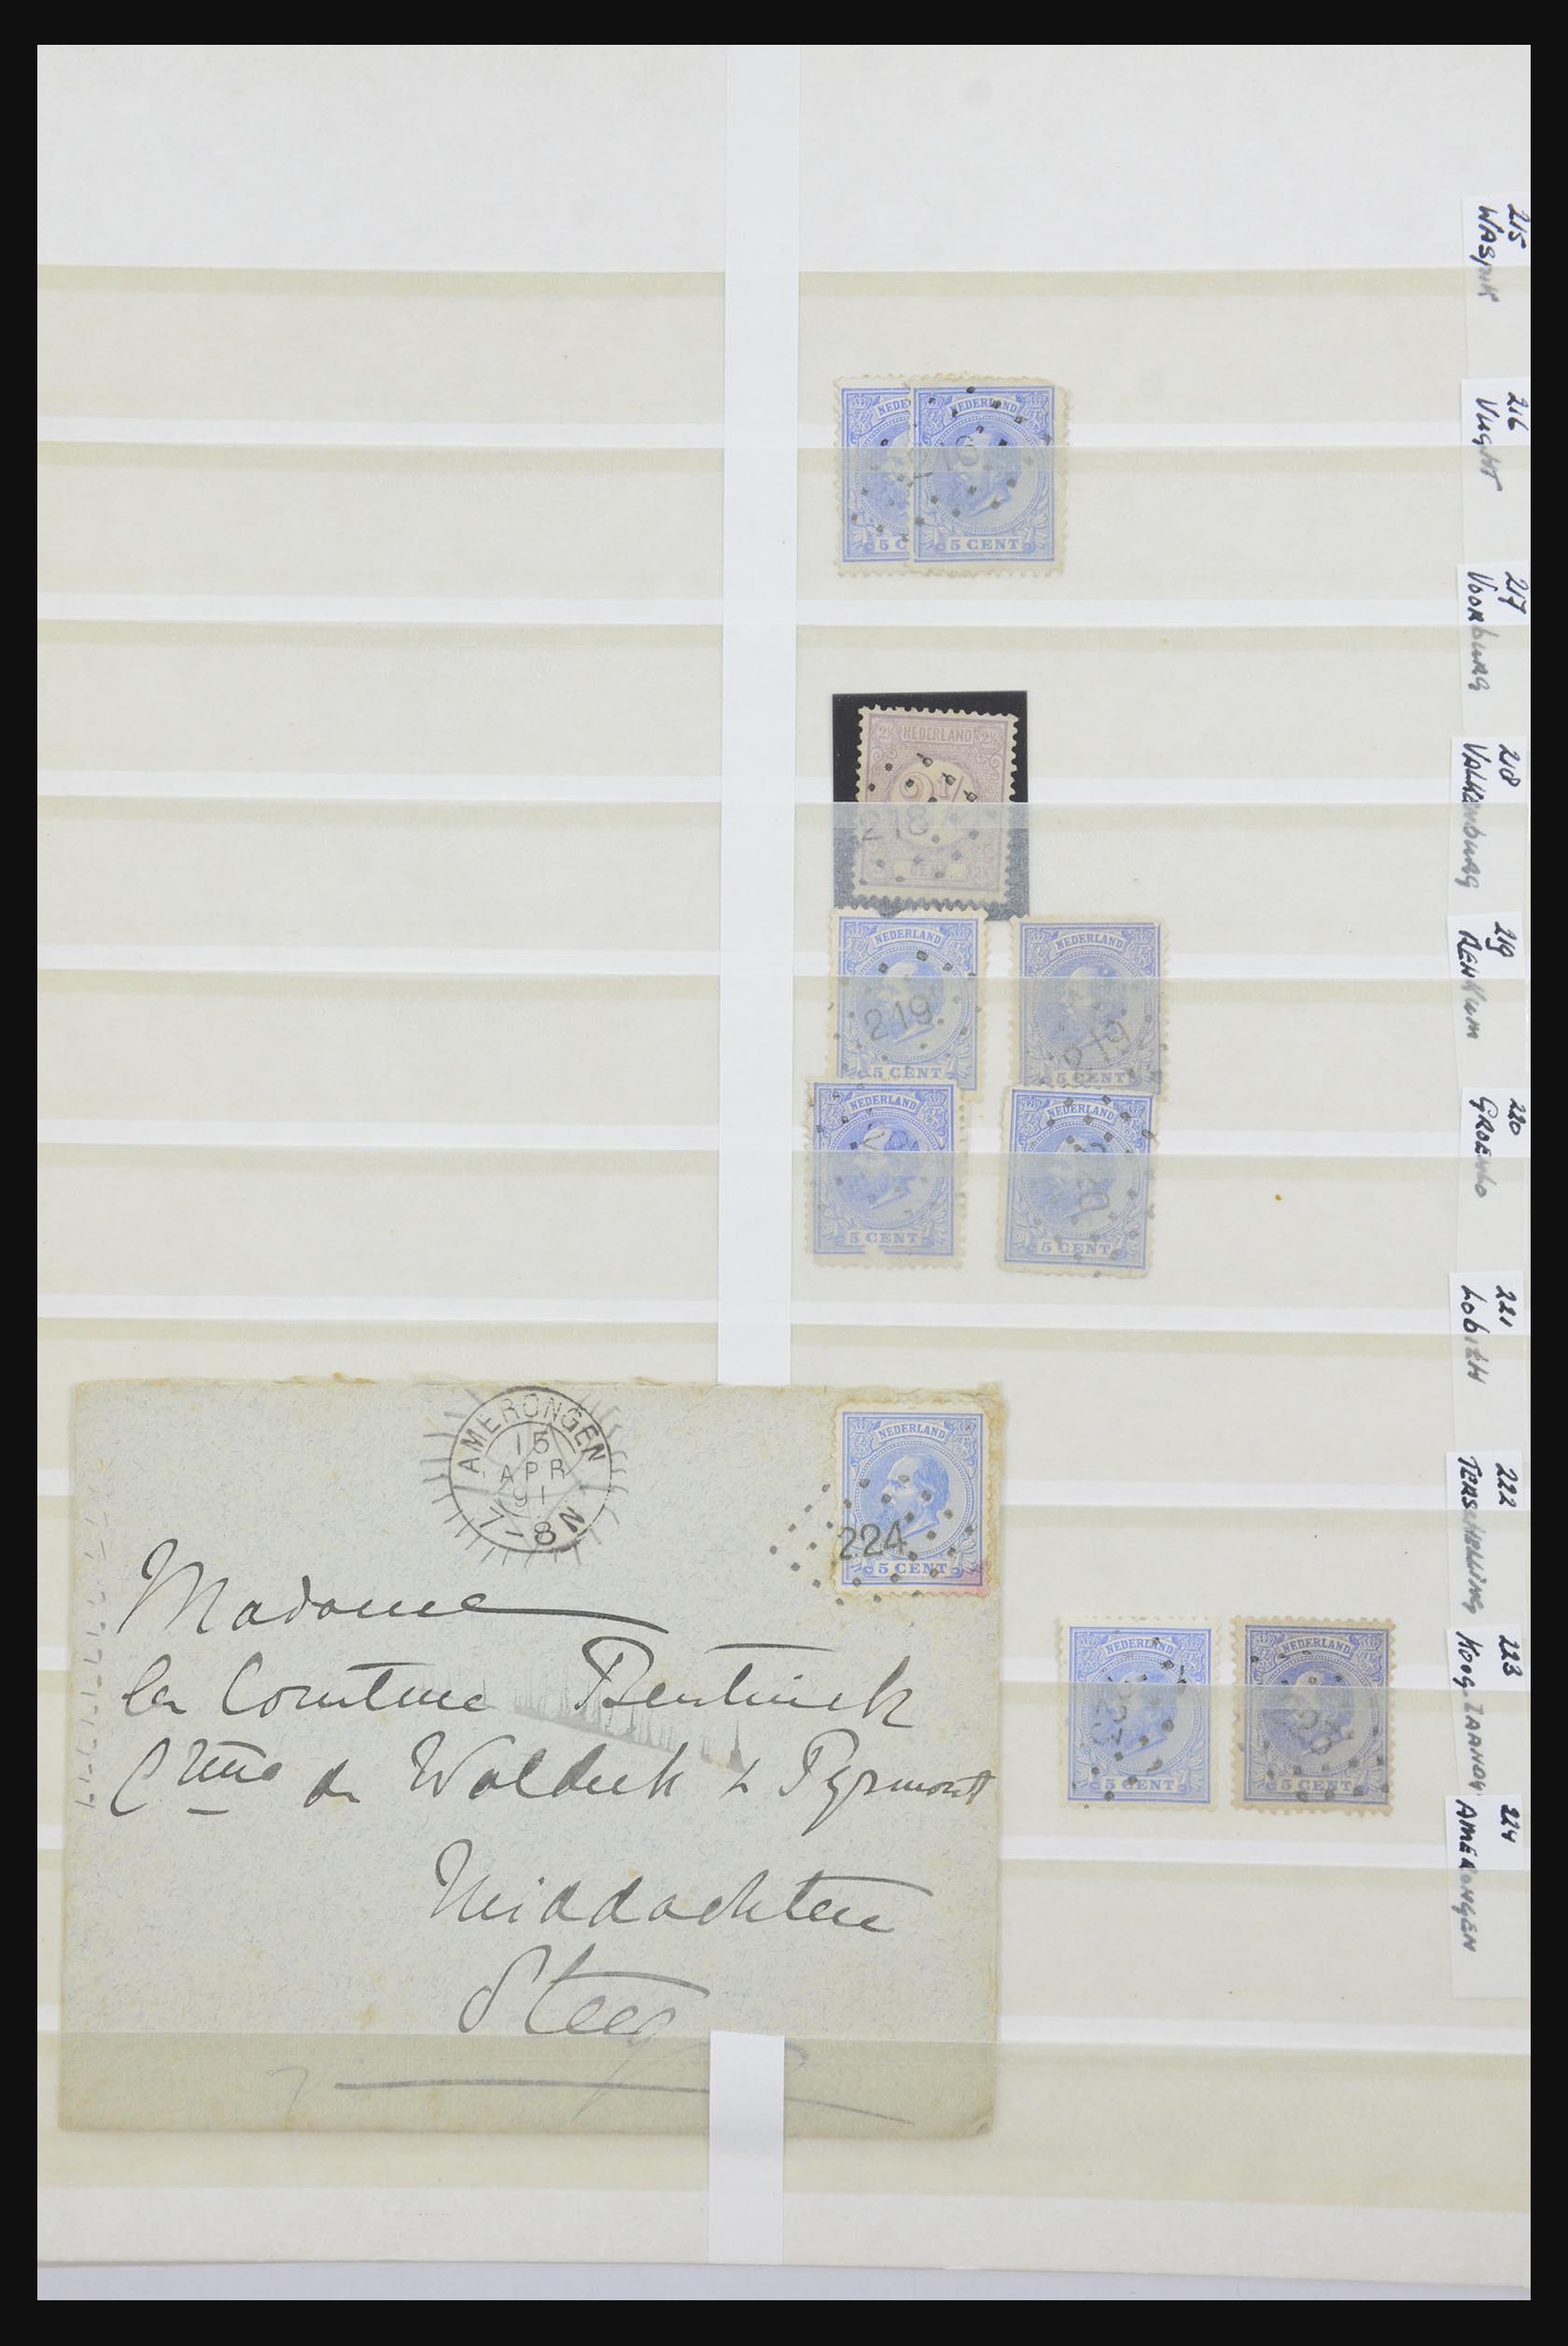 215
WASPIK
216
VUGHT
NEDERLAND
216
5 C
5 CENT
217
VOORBURG
218
VALKENBURG
2½ NEDERLAND 2½
2½
218
219
RENKUM
NEDERLAND
219
5 CENT
NEDERLAND
219
5 CENT
220
GROENLO
NEDERLAND
5 CENT
NEDERLAND
220
5 CENT
221
LOBITH
AMERONGEN
15
APR
91
7-8N
NEDERLAND
224
5 CENT
222
TERSCHELLING
Madame
la Comtesse Bentinck
Ctesse de Waldeck & Pyrmont
Middachten
Steeg
223
KOOG-ZAANDY
NEDERLAND
223
5 CENT
NEDERLAND
5 CENT
224
AMERONGEN